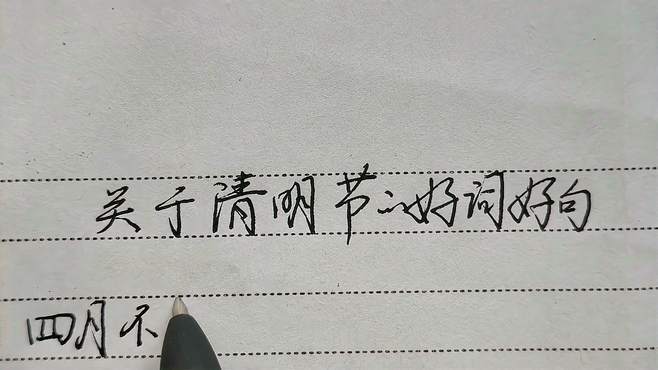 关于清明节的好词好句
四月不